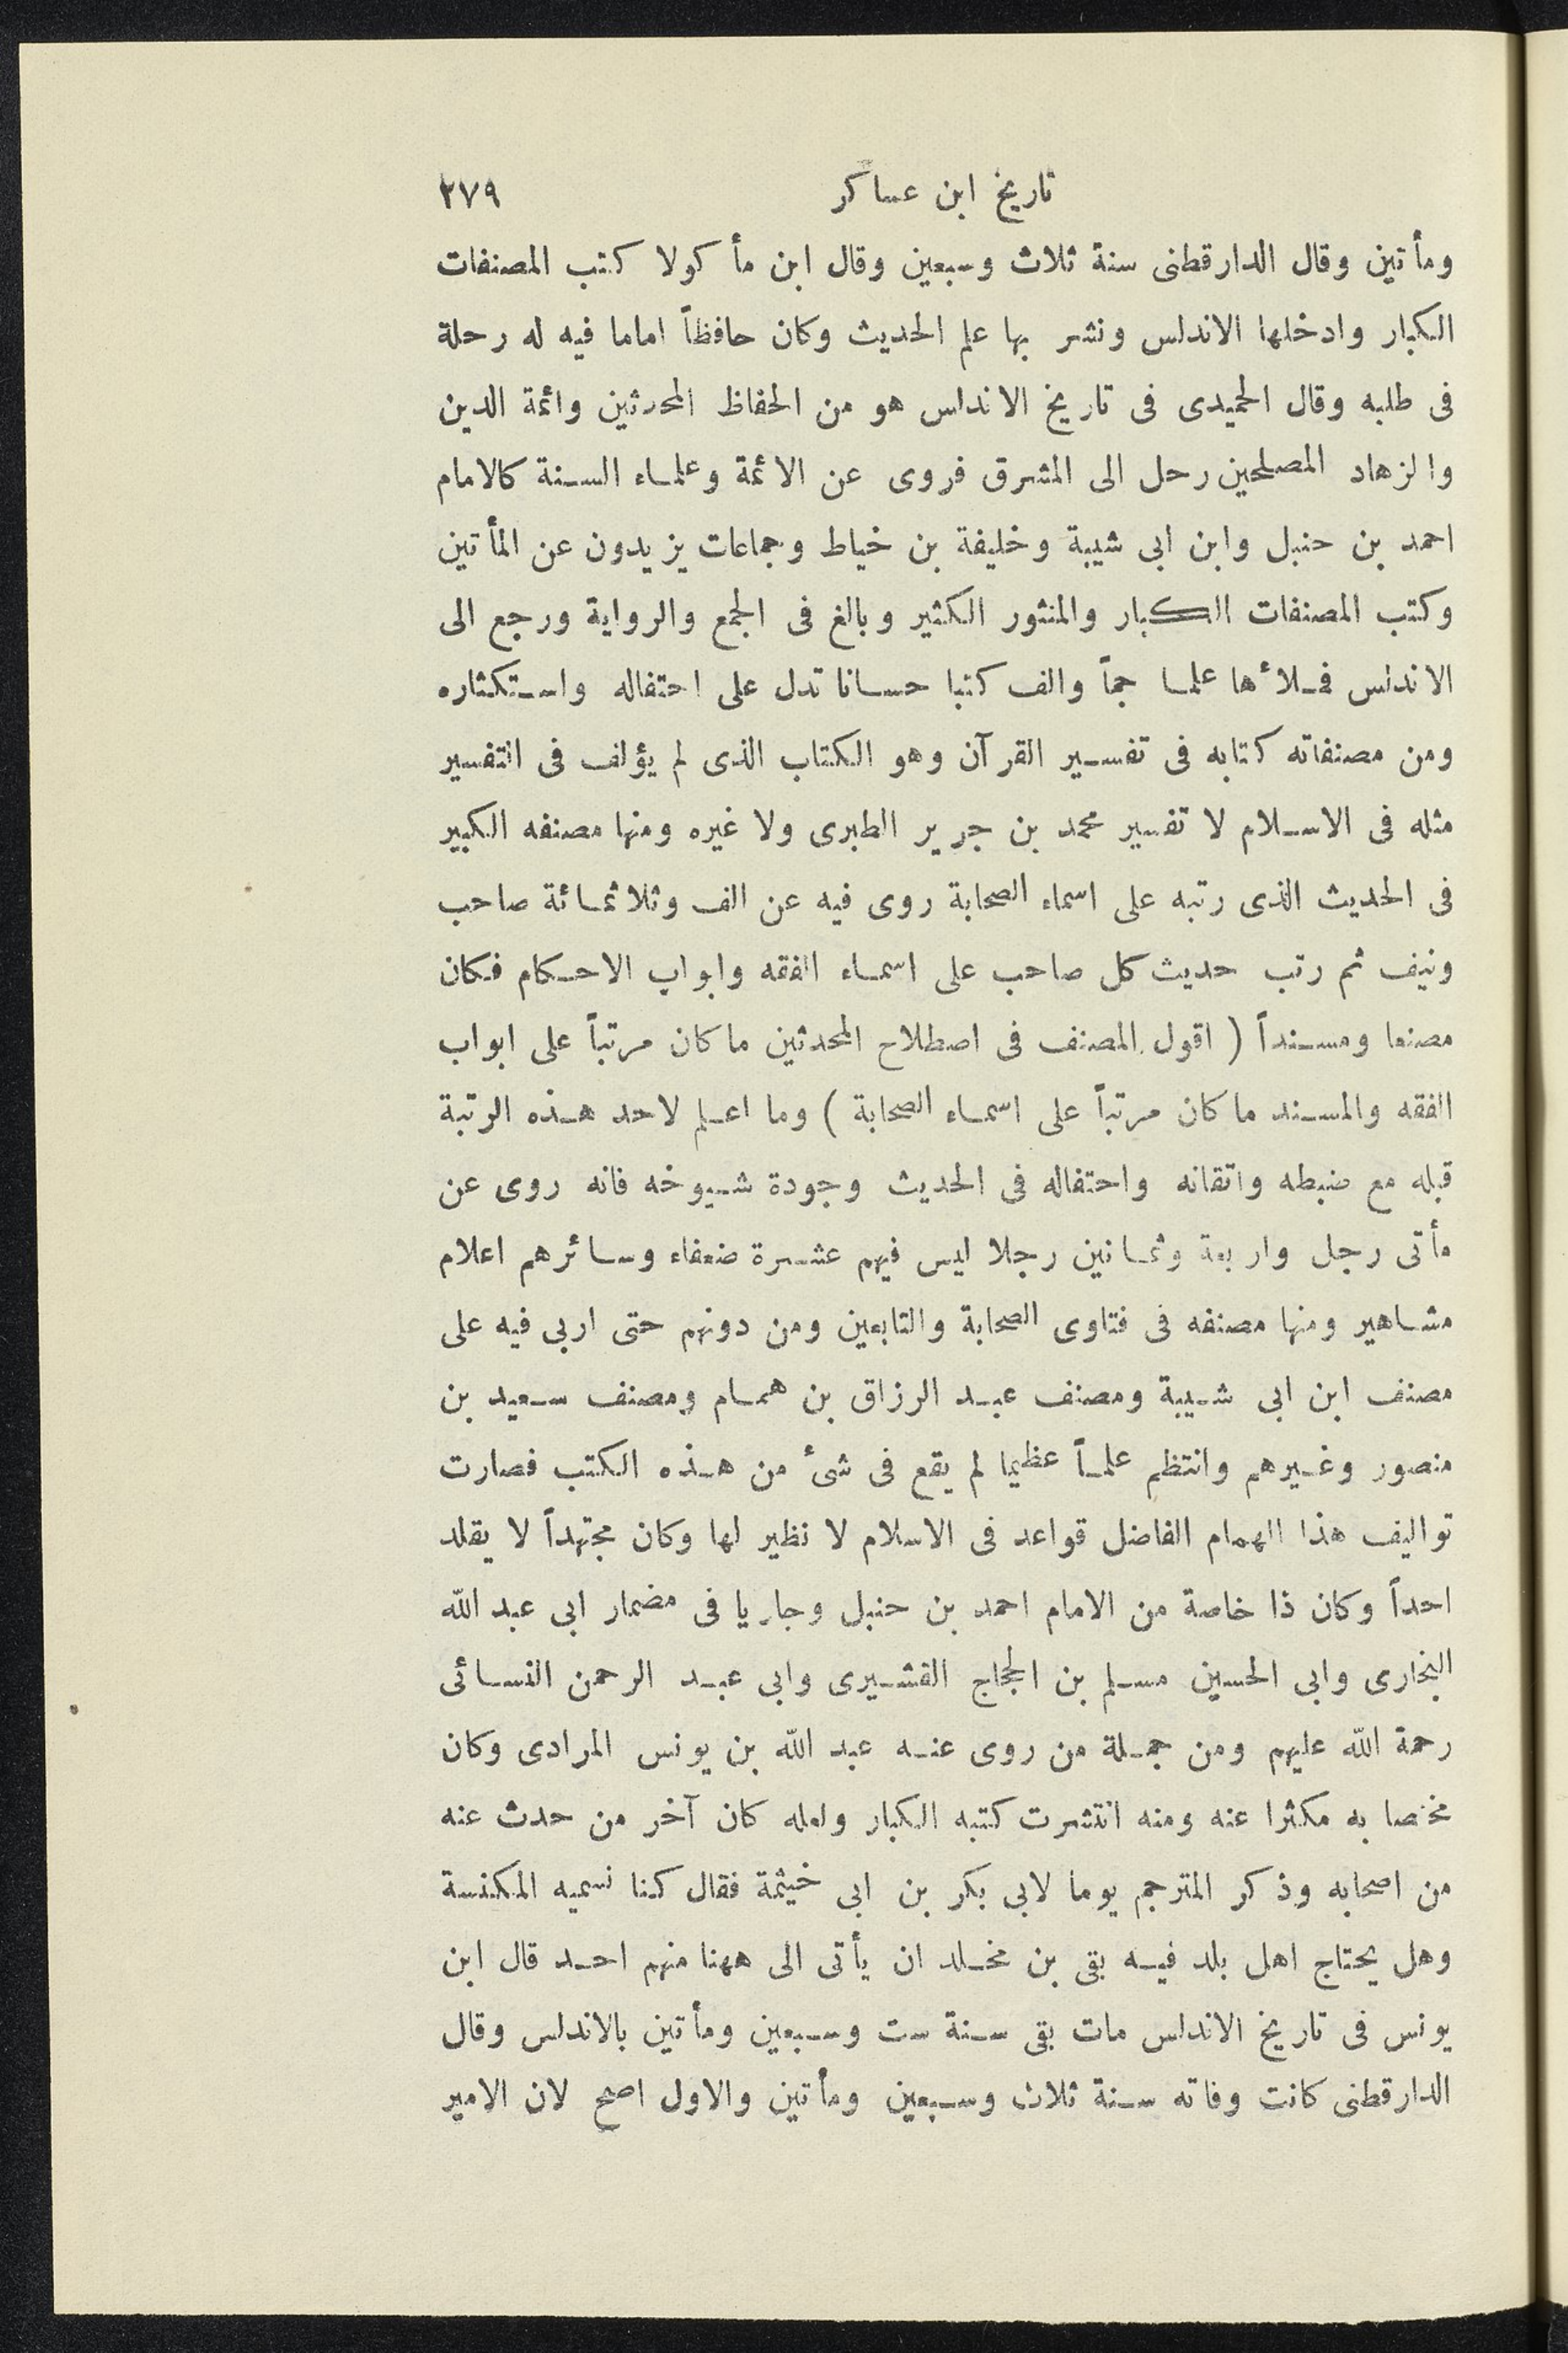 تاريخ ابن عساكر ٢٧٩
ومأتين وقال الدارقطنى سنة ثلاث وسبعين وقال ابن مأكولا كتب المصنفات
الكبار وادخلها الاندلس ونشر بها علم الحديث وكان حافظاً اماما فيه له رحلة
فى طلبه وقال الحميدى فى تاريخ الاندلس هو من الحفاظ المحدثين وائمة الدين
والزهاد المصلحين رحل الى المشرق فروى عن الائمة وعلماء السنة كالامام
احمد بن حنبل وابن ابى شيبة وخليفة بن خياط وجماعات يزيدون عن المأتين
وكتب المصنفات الكبار والمنثور الكثير وبالغ فى الجمع والرواية ورجع الى
الاندلس فملأها علما جماً والف كتبا حسانا تدل على احتفاله واستكثاره
ومن مصنفاته كتابه فى تفسير القرآن وهو الكتاب الذى لم يؤلف فى التفسير
مثله فى الاسلام لا تفسير محمد بن جرير الطبرى ولا غيره ومنها مصنفه الكبير
فى الحديث الذى رتبه على اسماء الصحابة روى فيه عن الف وثلاثمائة صاحب
ونيف ثم رتب حديث كل صاحب على اسماء الفقه وابواب الاحكام فكان
مصنفا ومسنداً ( اقول المصنف فى اصطلاح المحدثين ما كان مرتباً على ابواب
الفقه والمسند ما كان مرتباً على اسماء الصحابة ) وما اعلم لاحد هذه الرتبة
قبله مع ضبطه واتقانه واحتفاله فى الحديث وجودة شيوخه فانه روى عن
مأتى رجل واربعة وثمانين رجلا ليس فيهم عشرة ضعفاء وسائرهم اعلام
مشاهير ومنها مصنفه فى فتاوى الصحابة والتابعين ومن دونهم حتى اربى فيه على
مصنف ابن ابى شيبة ومصنف عبد الرزاق بن همام ومصنف سعيد بن
منصور وغيرهم وانتظم علماً عظيما لم يقع فى شئ من هذه الكتب فصارت
تواليف هذا الهمام الفاضل قواعد فى الاسلام لا نظير لها وكان مجتهداً لا يقلد
احداً وكان ذا خاصة من الامام احمد بن حنبل وجاريا فى مضمار ابى عبد الله
البخارى وابى الحسين مسلم بن الحجاج القشيرى وابى عبد الرحمن النسائى
رحمة الله عليهم ومن جملة من روى عنه عبد الله بن يونس المرادى وكان
مختصا به مكثرا عنه ومنه انتشرت كتبه الكبار ولعله كان آخر من حدث عنه
من اصحابه وذكر المترجم يوما لابى بكر بن ابى خيثمة فقال كنا نسميه المكنسة
وهل يحتاج اهل بلد فيه بقى بن مخلد ان يأتى الى ههنا منهم احد قال ابن
يونس فى تاريخ الاندلس مات بقى سنة ست وسبعين ومأتين بالاندلس وقال
الدارقطنى كانت وفاته سنة ثلاث وسبعين ومأتين والاول اصح لان الامير